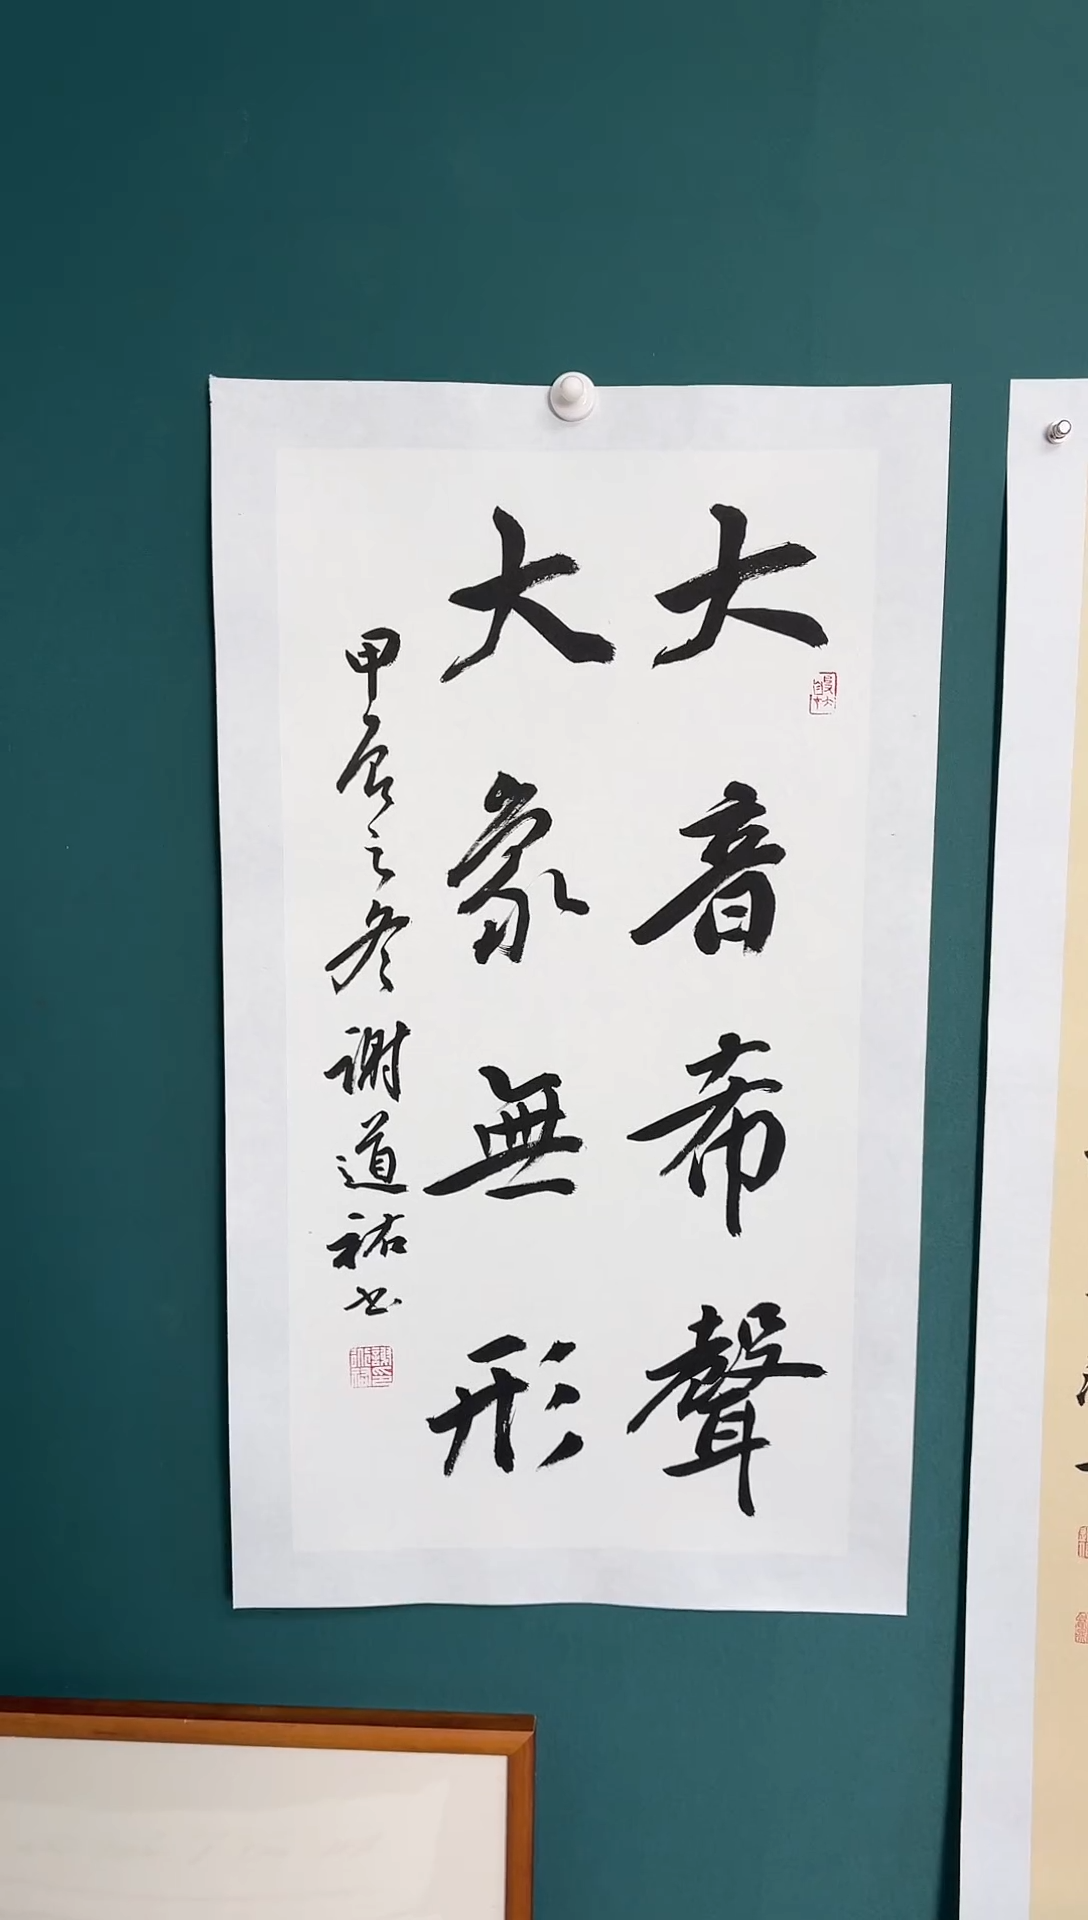 大音希聲
大象無形
甲辰之冬谢道祐书